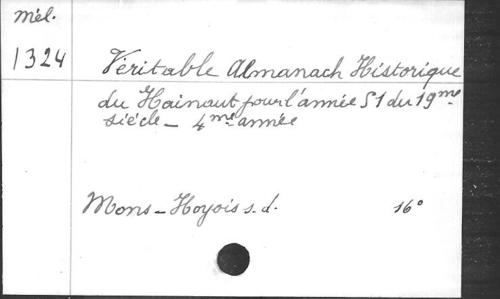 Mél.
1324
Véritable Almanach Historique
du Hainaut pour l'année 51 du 19me
siècle - 4me année
Mons - Hoyois s.d. 16°